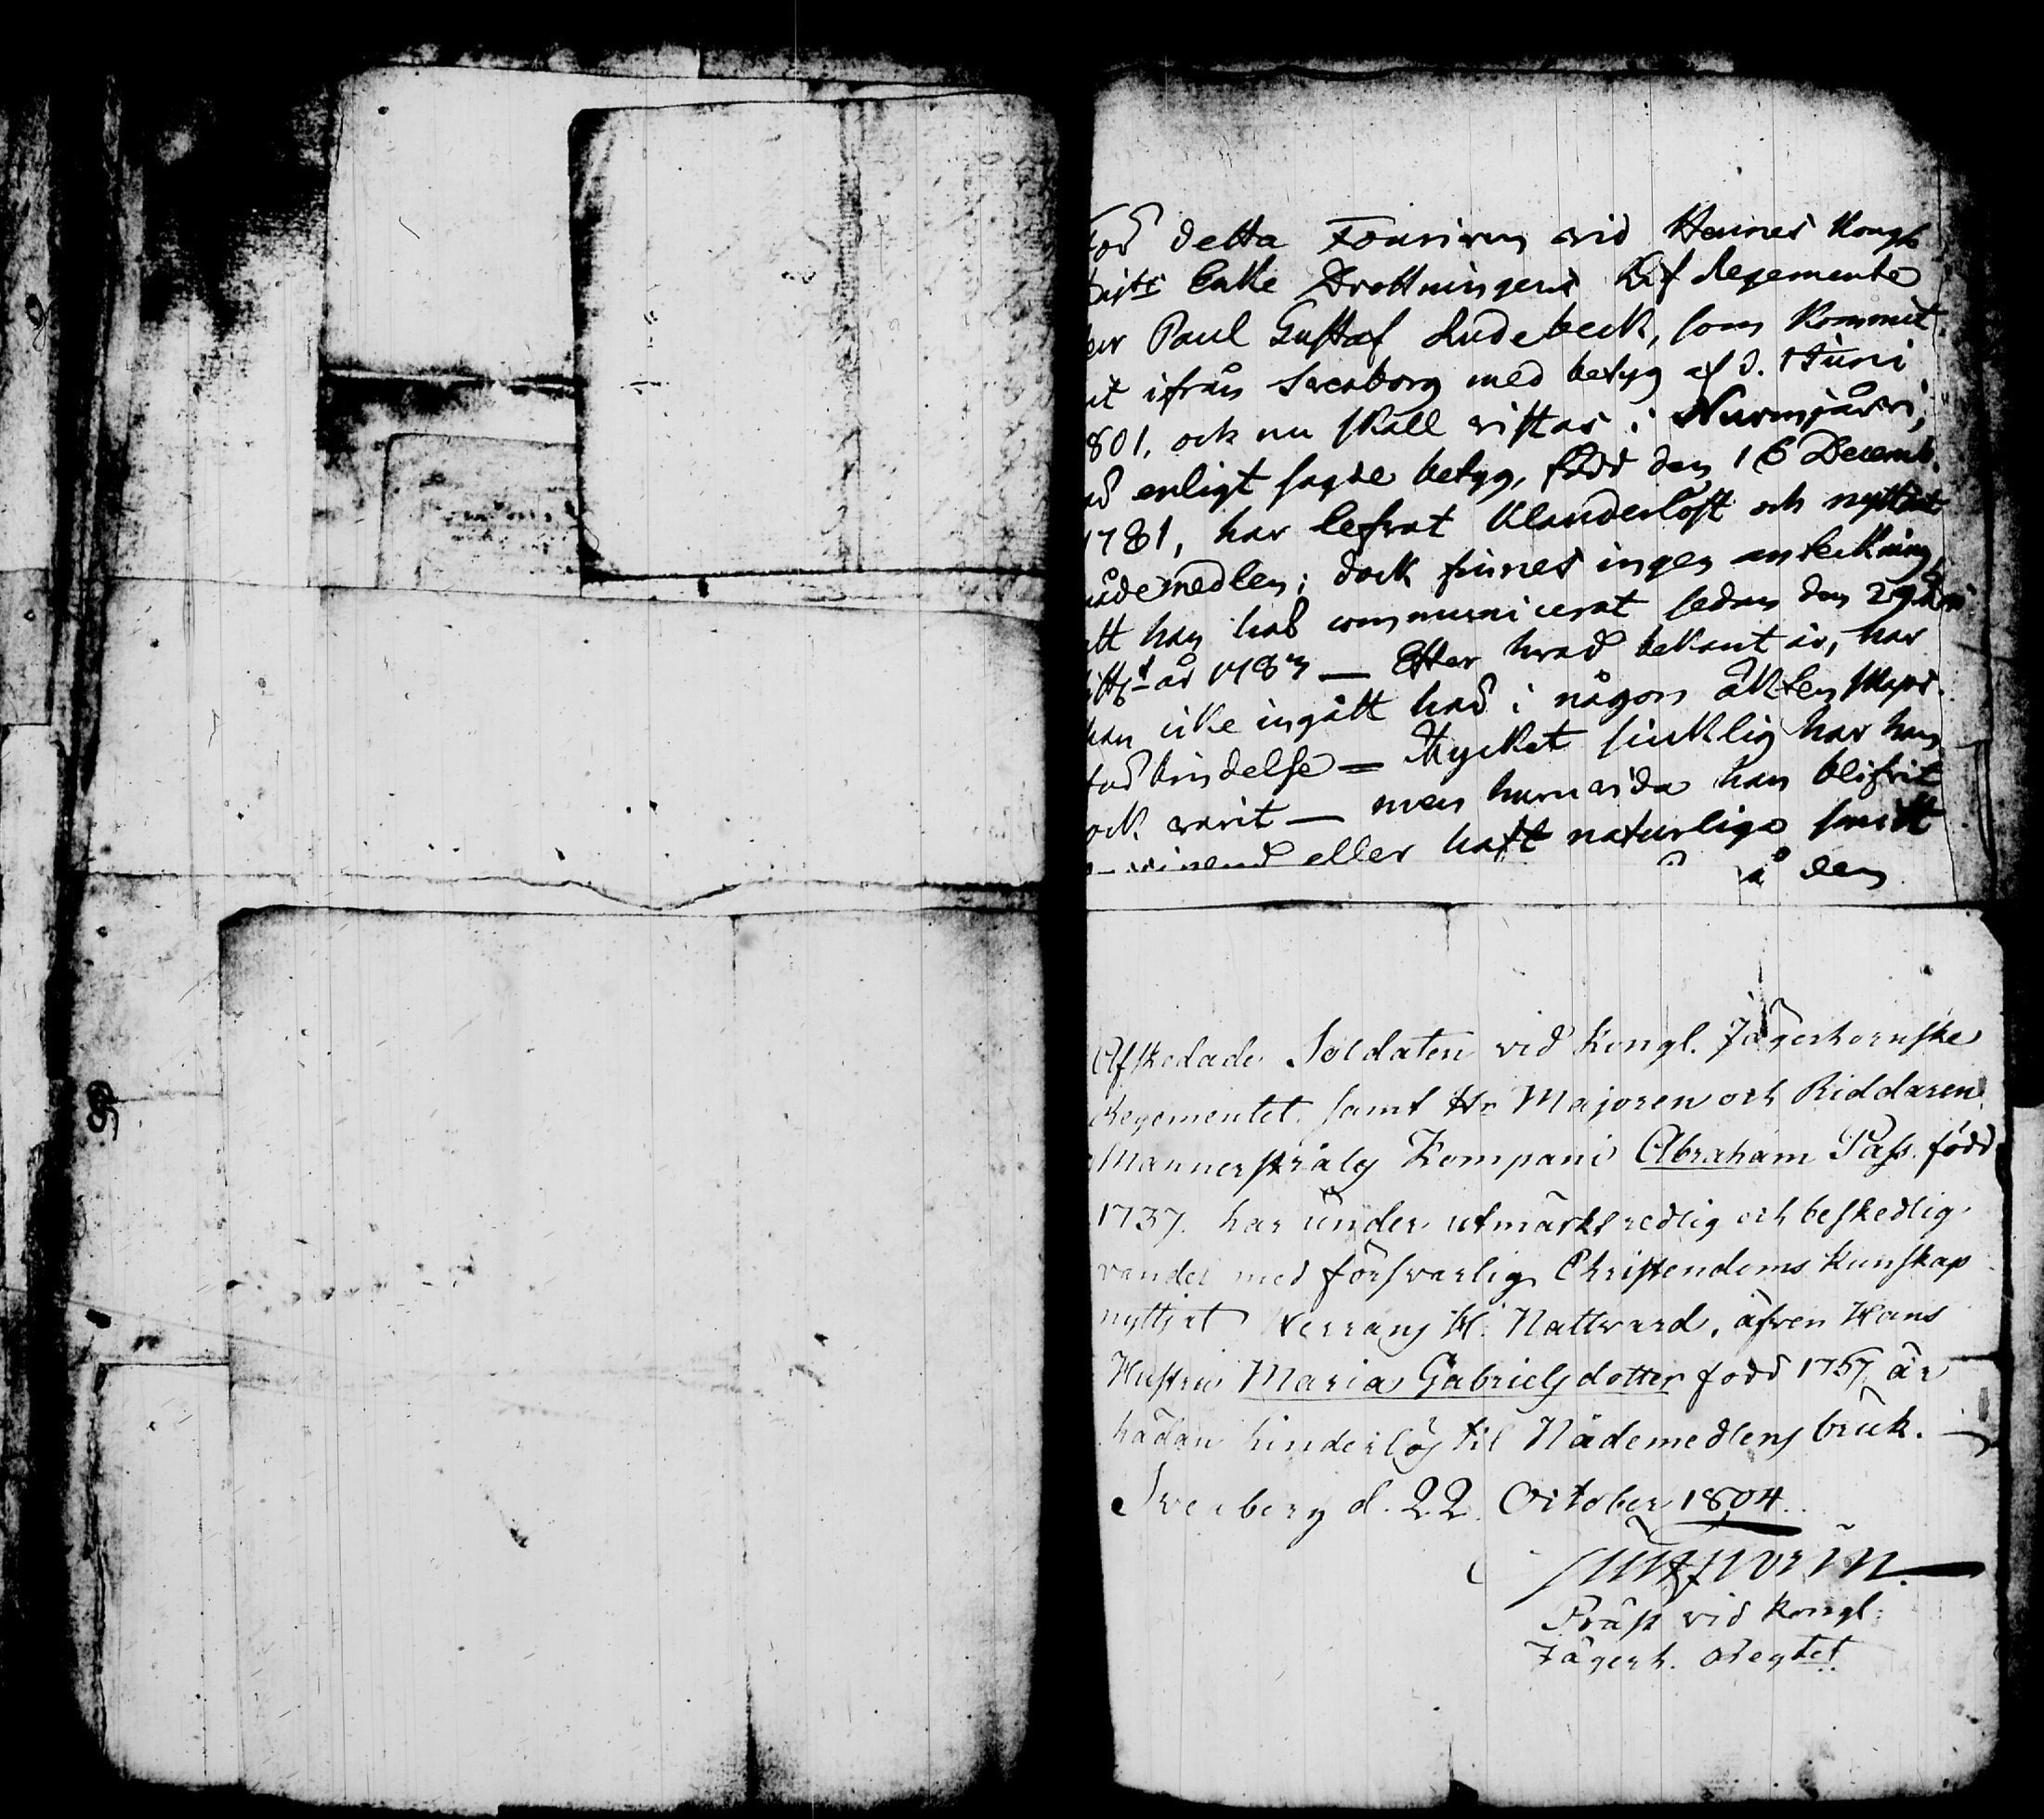 För detta Fouriren vid Hennes Kongl
Maj:ts Enke Drottningens Lif Regemente
Paul Gustaf Rudebeck, som kommit
ut ifrån Sveaborg med betyg af d. 1 Juni
1801, och nu skall vistas i Nurmijärvi,
enligt sagde betyg, född den 16 Decemb.
1781, har lefvat klanderlöst och nyttjat
nådemedlen; dock finnes ingen anteckning,
att han har communicerat sedan den 29
år — Efter hvad bekant är, har
han icke ingått har i någon äktenskaps
förbindelse — Mycket siuklig har han
ock varit — men huruvida han blifvit
eller haft naturliga
å den
Afskedade Soldaten vid Kongl. Jägerhornske
Regementet samt Hr Majoren och Riddaren
Mannerstråles Kompani Abraham Pass. född
1737. har under utmärkt redlig och beskedlig
vandel med försvarlig Christendoms kunskap
nyttjat Herrans H. Nattvard, äfven Hans
Hustru Maria Gabrielsdotter född 1757 är
hädan hinderlös til Nådemedlens bruk.
Sveaborg d. 22. October 1804.
Präst vid Kongl.
Jägerh. Reg:tet